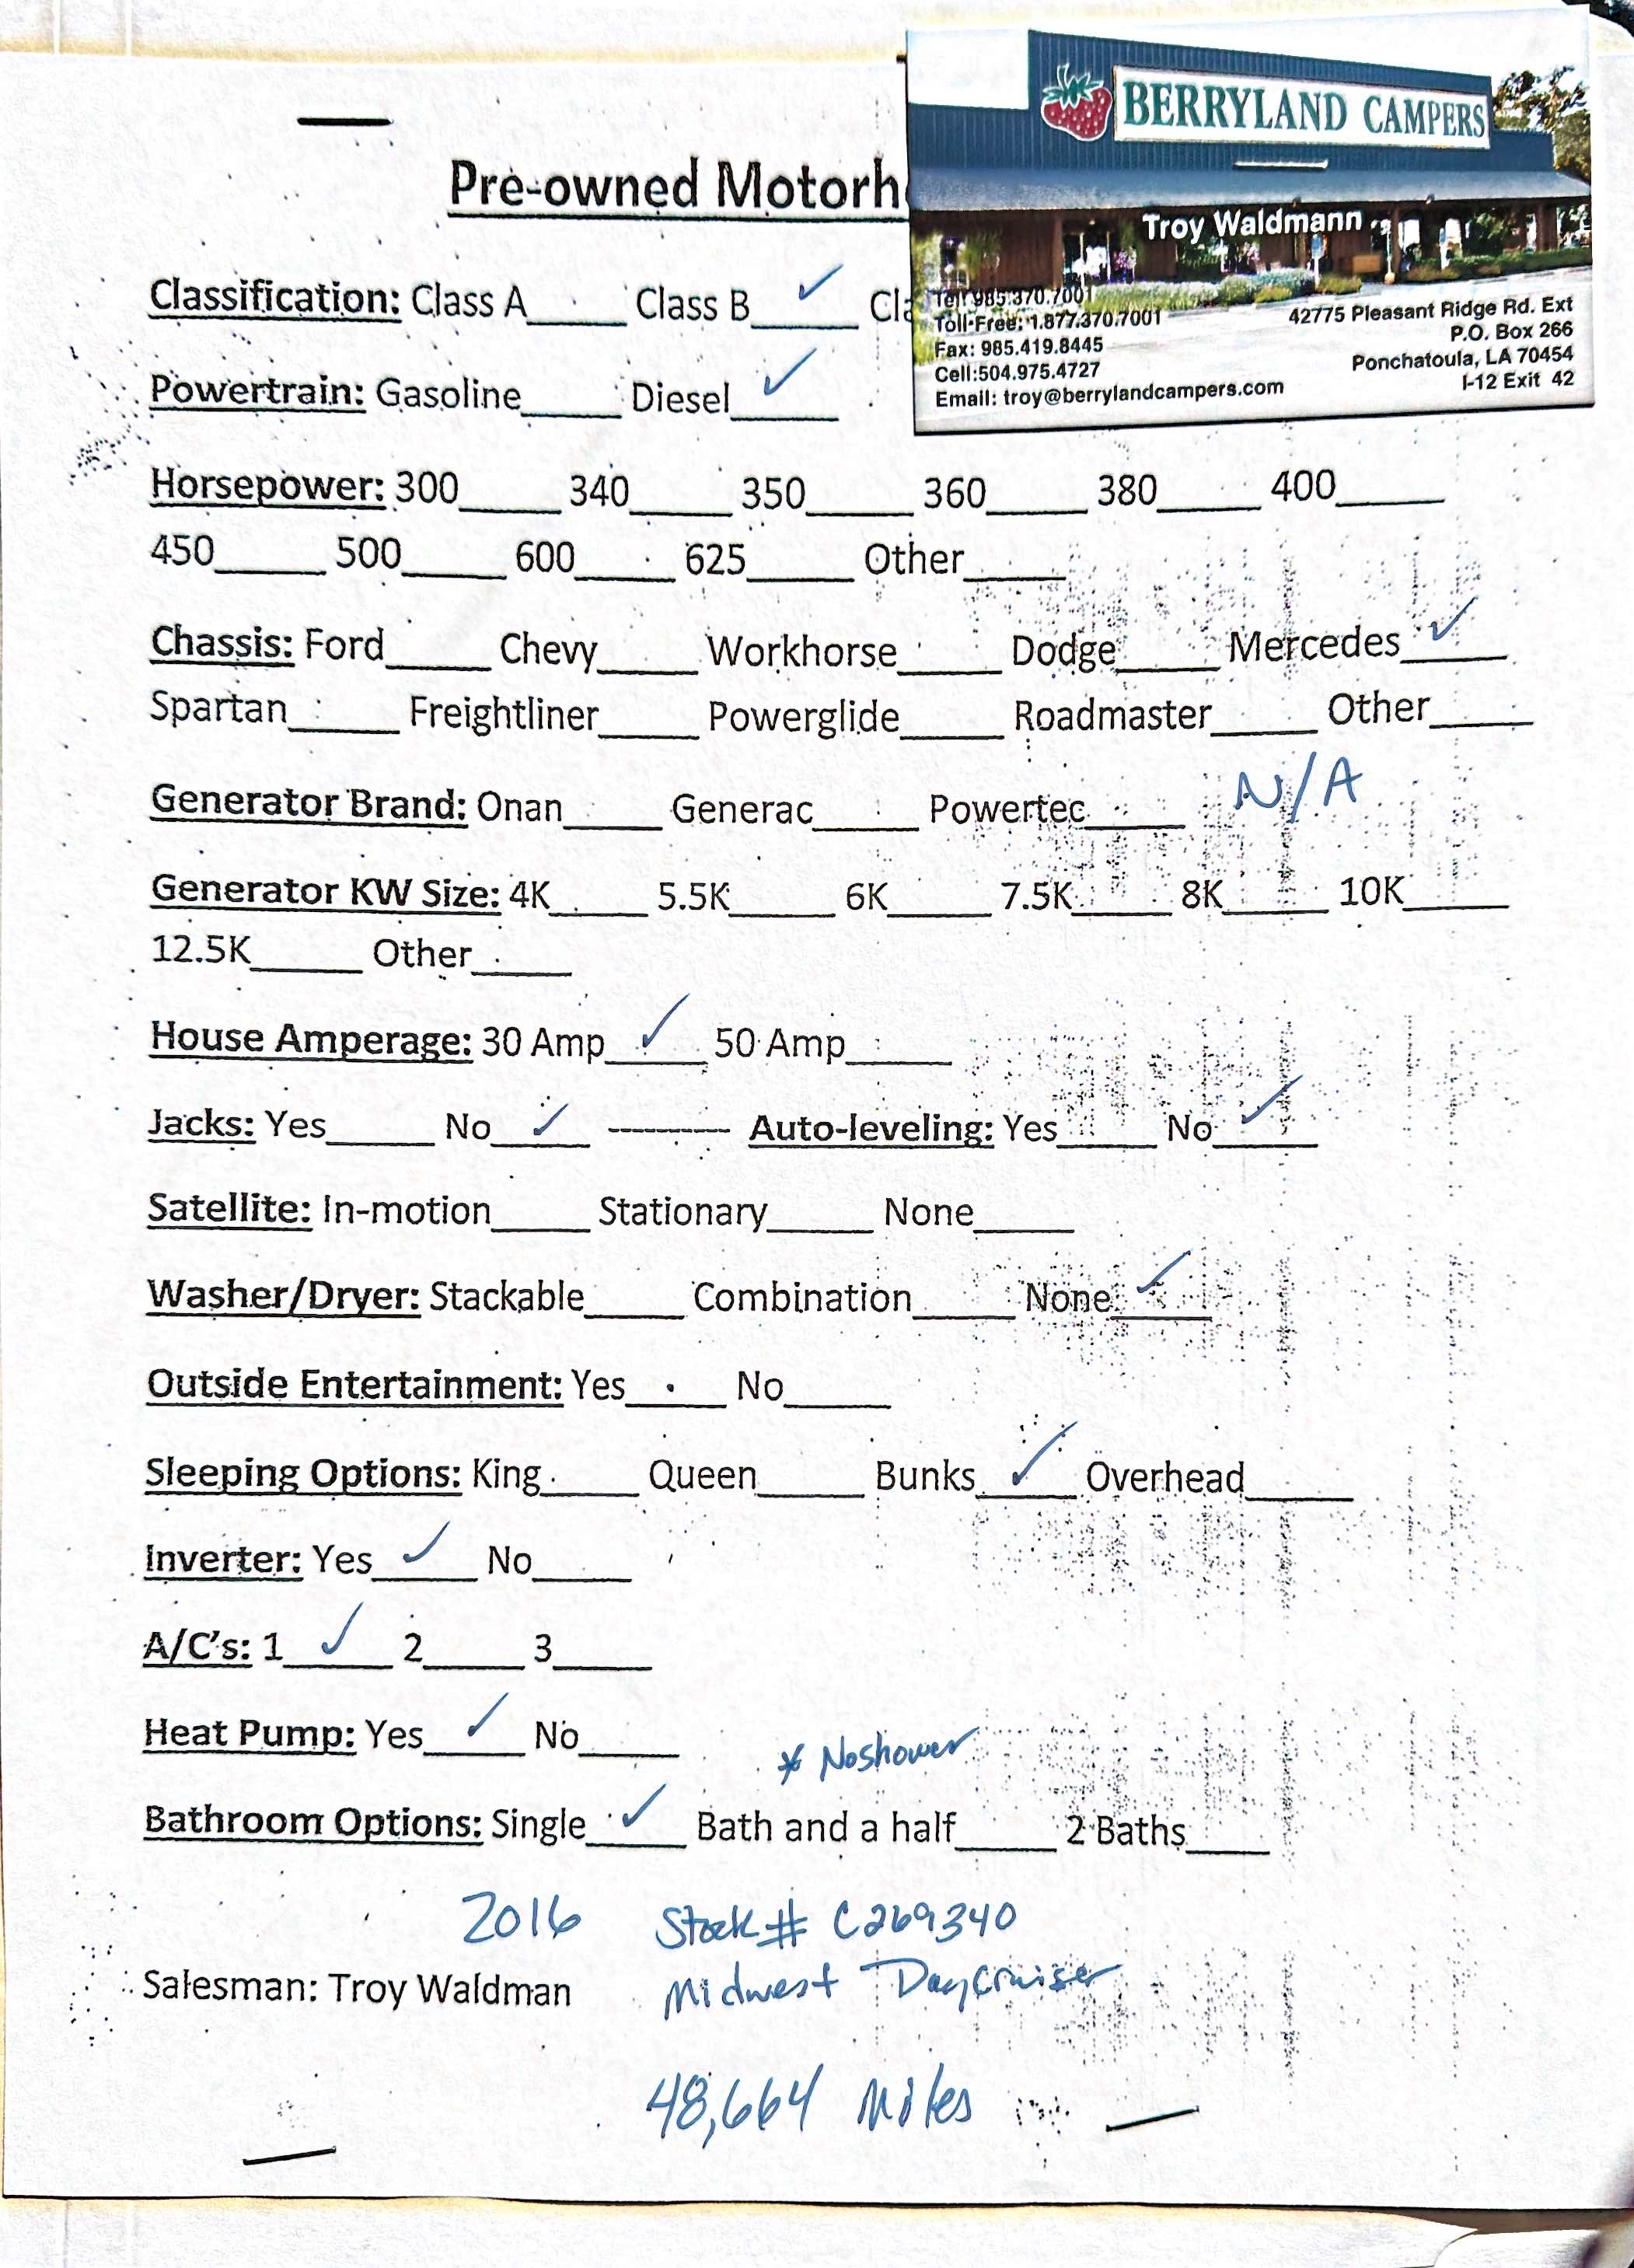 BERRYLAND CAMPERS
Troy Waldmann
Tel: 985.370.7001
Toll-Free: 1.877.370.7001
Fax: 985.419.8445
Cell:504.975.4727
Email: troy@berrylandcampers.com
42775 Pleasant Ridge Rd. Ext
P.O. Box 266
Ponchatoula, LA 70454
I-12 Exit 42
Pre-owned Motorh
Classification: Class A_____ Class B__✓__ Cla
Powertrain: Gasoline_____ Diesel__✓__
Horsepower: 300_____ 340_____ 350_____ 360_____ 380_____ 400_____
450_____ 500_____ 600_____ 625_____ Other_____
Chassis: Ford_____ Chevy_____ Workhorse_____ Dodge_____ Mercedes__✓__
Spartan_____ Freightliner_____ Powerglide_____ Roadmaster_____ Other_____
Generator Brand: Onan_____ Generac_____ Powertec_____ N/A
Generator KW Size: 4K_____ 5.5K_____ 6K_____ 7.5K_____ 8K_____ 10K_____
12.5K_____ Other_____
House Amperage: 30 Amp__✓__ 50 Amp_____
Jacks: Yes_____ No__✓__ ---------- Auto-leveling: Yes_____ No__✓__
Satellite: In-motion_____ Stationary_____ None_____
Washer/Dryer: Stackable_____ Combination_____ None__✓__
Outside Entertainment: Yes_____ No_____
Sleeping Options: King_____ Queen_____ Bunks__✓__ Overhead_____
Inverter: Yes__✓__ No_____
A/C's: 1__✓__ 2_____ 3_____
Heat Pump: Yes__✓__ No_____
* No shower
Bathroom Options: Single__✓__ Bath and a half_____ 2 Baths_____
2016 Stock# C269340
Salesman: Troy Waldman Midwest Daycruiser
48,664 Miles